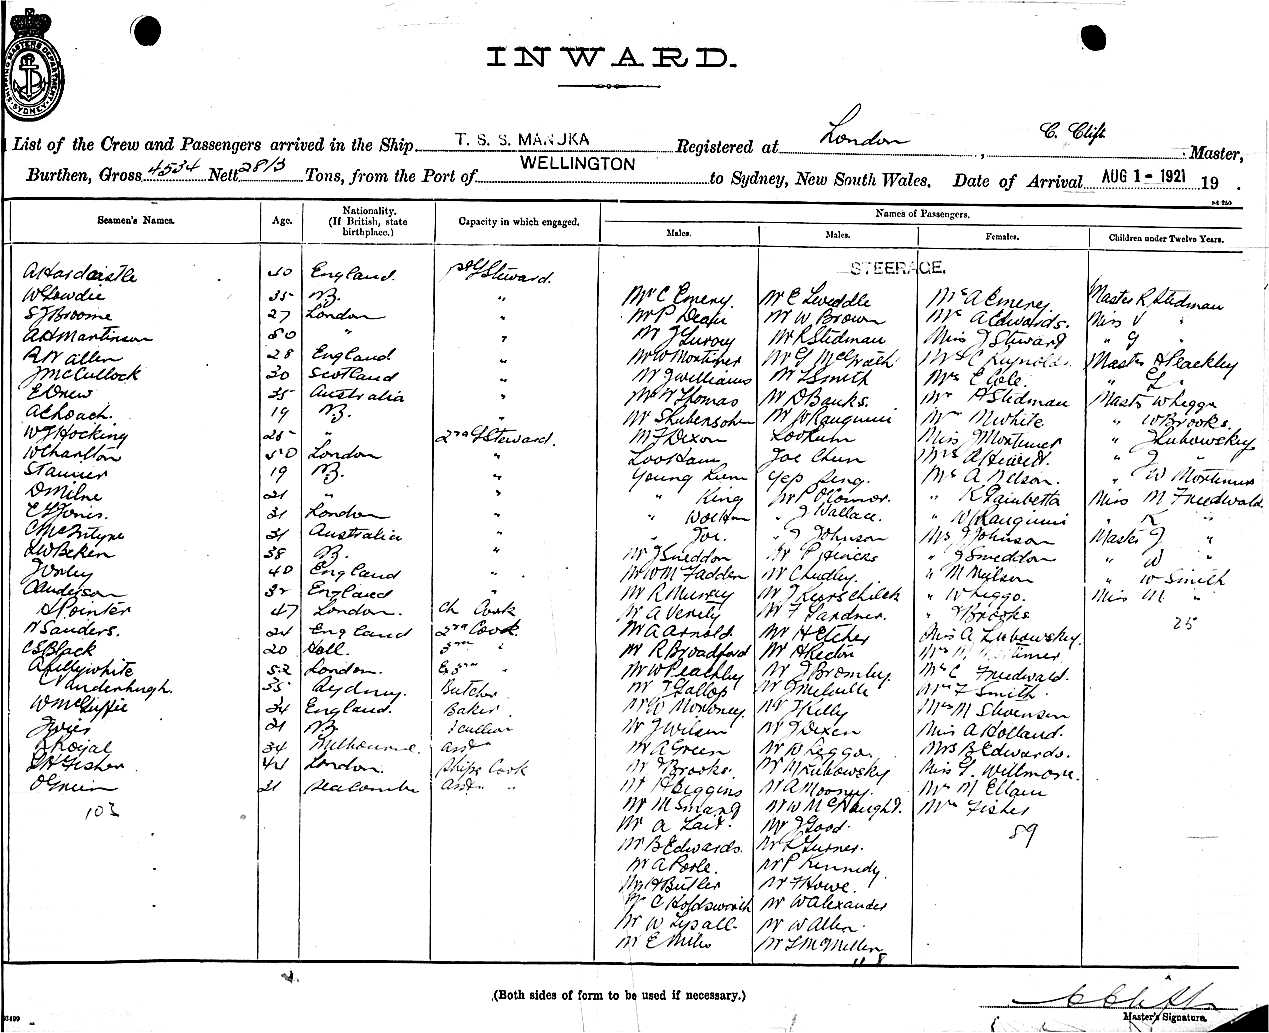 INWARD.
List of the Crew and Passengers arrived in the Ship T. S. S. MANUKA Registered at London, C. Clift Master,
Burthen, Gross 4534 Nett 2813 Tons, from the Port of WELLINGTON to Sydney, New South Wales. Date of Arrival AUG 1 - 1921 19 .
Seamen's Names. Age. Nationality. (If British, state birthplace.) Capacity in which engaged. Names of Passengers.
Males. Males. Females. Children under Twelve Years.
STEERAGE.
A Hardcastle 40 England Steward.
W Gowdie 35 NZ. " Mr C Emery. Mr E Liveddle Mrs A Emery Master R Stedman
S J Broome 27 London " Mr P Dean Mr W Brown Mrs A Edwards. Miss V "
A H Martinson 50 " " Mr R Stedman Miss J Steward " G "
R W Allen 28 England " Mr W Mortimer Mr G McGrath Mrs C Reynolds Master A Peachley
J McCullock 30 Scotland " Mr J Williams Mr L Smith Mrs E Cole. "
E Drew 35 Australia " Mr W Thomas Mr D Banks. Mrs A Stedman Master W Leggo
A E Roach. 19 NZ. " Mr Stubensohn Mr W Rauguini Mrs M White " W Brooks.
W J Hocking 25 " 2nd Steward. Mr F Dixon Lookum Miss Mortimer " J Lubowsky
W Charlton 50 London " Loo Ham Joe Chun Mrs A Hewett. " J "
S Tanner 19 NZ. " Young Lum Yep Sing. Mrs A Nelson. " W Mortimer
D Milne 21 " " " King Mr P O'Connor. " R Miss M Friedwald.
31 London " " J Wallace. " W Rauguini "
C McIntyre 31 Australia " " Joe. " J Johnson Mrs J Johnson Master J "
L W Beken 38 NZ. " Mr J Sneddon Mr P Hericks " J Sneddon " W "
J Varley 40 England " Mr W McFadden Mr Chudley. " M Neilson " W Smith
J Anderson 32 England " Mr R Murray Mr J " W Leggo. Miss M "
S Pointer 47 London. Ch Cook Mr A Verity Mr F Gardner. " J Brooks 25
N Sanders. 24 England 2nd Cook. Mr A Arnold Mr H Etches Miss A Lubowsky.
C S Black 20 Hull. 3rd " Mr R Broadford Mr H Rector Mrs M Mortimer.
A Lillywhite 52 London. " Mr W Peachley Mr J Bromley Mrs C Friedwald.
Vanderhugh. 35 Sydney. Butcher Mr J Gallop Mr J Melville Mrs F Smith.
W McGuffie 24 England. Baker. Mr W Moroney. Mr J Kelly Mrs M Stevenson
J Vries 21 NZ Scullion Mr J Wilson Mr J Dixon Miss A Holland.
R Royal 34 Melbourne. Asst Mr A Green Mr W Leggo. Mrs B Edwards.
Fisher 44 London. Ships Cook Mr J Brooks. Mr M Lubowsky Miss G. Willmore.
O Green 21 Seacombe Asst " Mr H Higgins Mr A Mooney. Mrs M Ellam
103 Mr M Smart Mr W McNaught. Mrs Fisher
Mr A Lait. Mr J Good. 59
Mr B Edwards. Mr R Turner.
Mr A Poole. Mr P Kennedy.
Mr H Butler Mr F Howe.
Mr C Holdsworth Mr W Alexander
Mr W Lysall. Mr W Allen
Mr E Miles Mr L McMillen
(Both sides of form to be used if necessary.)
C Clift
Master's Signature.